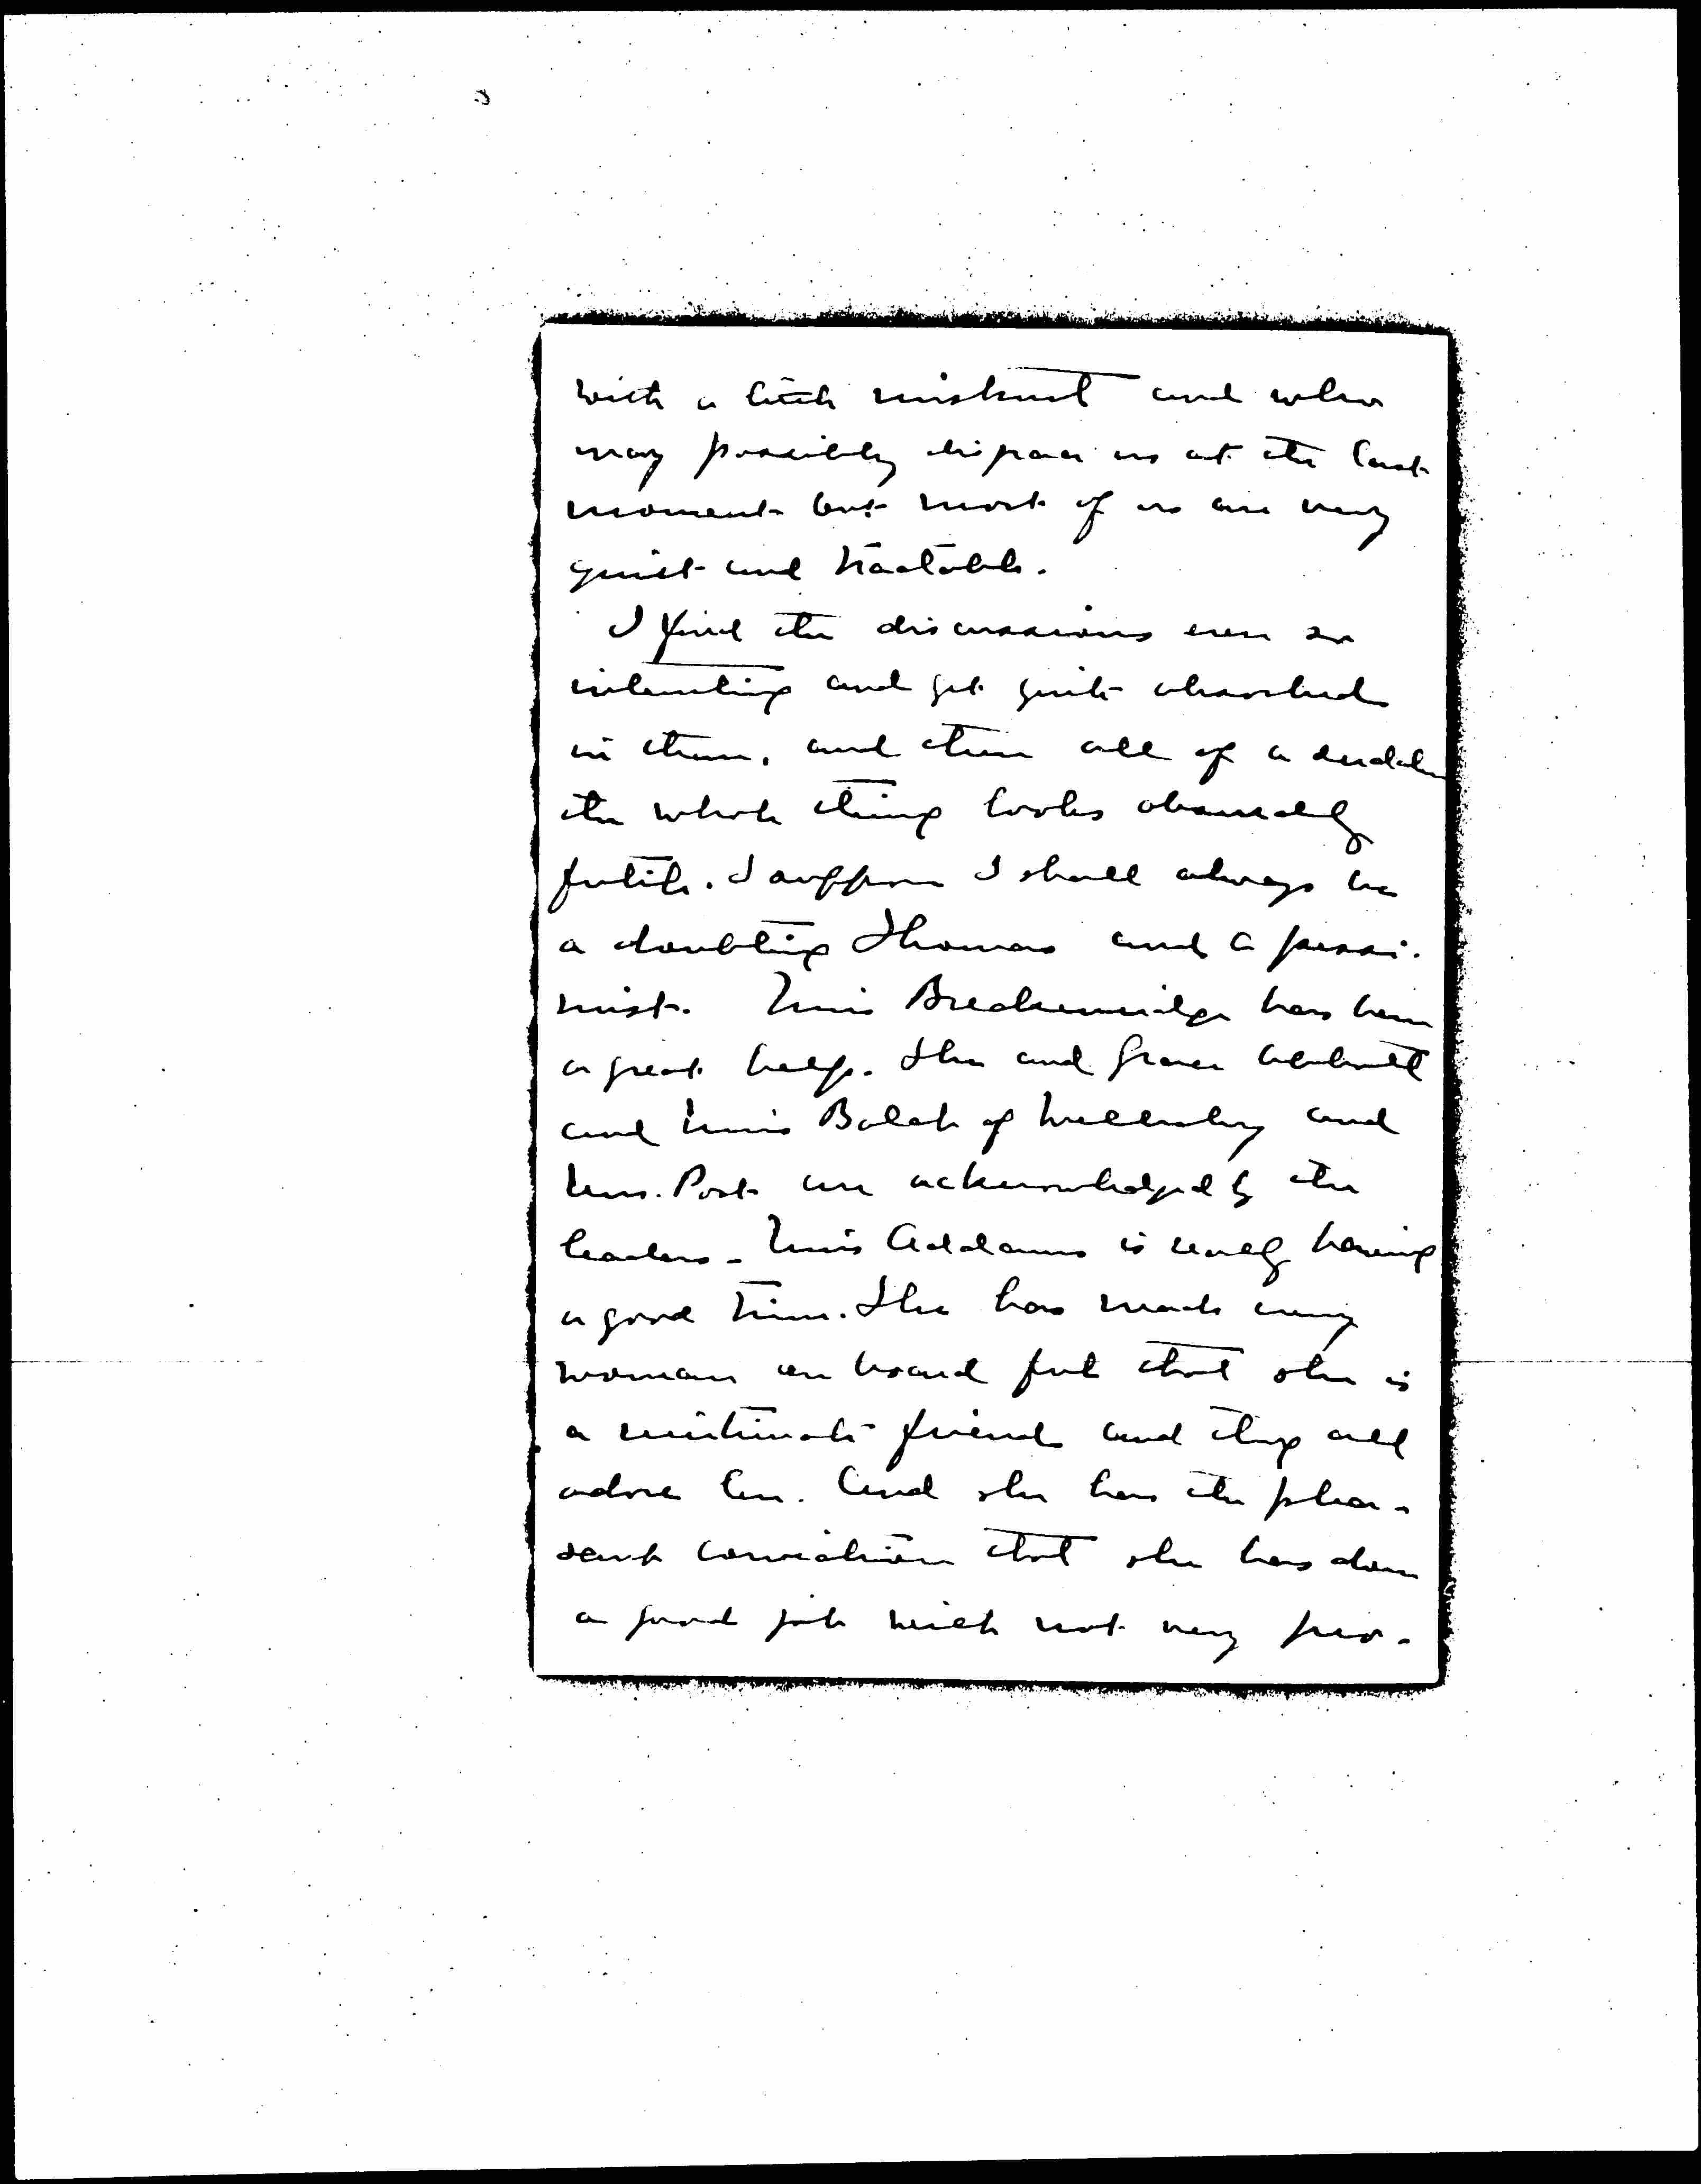 with a little mistrust and who
may possibly disgrace us at the last
moment but most of us are very
quiet and tractable.
I find the discussions ever so
interesting and get quite absorbed
in them, and then all of a sudden
the whole thing looks absurdly
futile. I suppose I shall always be
a doubting Thomas and a pessi-
mist. Miss Breckenridge has been
a great help. She and Grace Abbott
and Miss Balch of Wellesley and
Mrs. Post are acknowledgedly the
leaders - Miss Addams is really having
a good time. She has made every
woman on board feel that she is
a intimate friend and they all
adore her. And she has the plea-
sant conviction that she has done
a good job with not very pro-